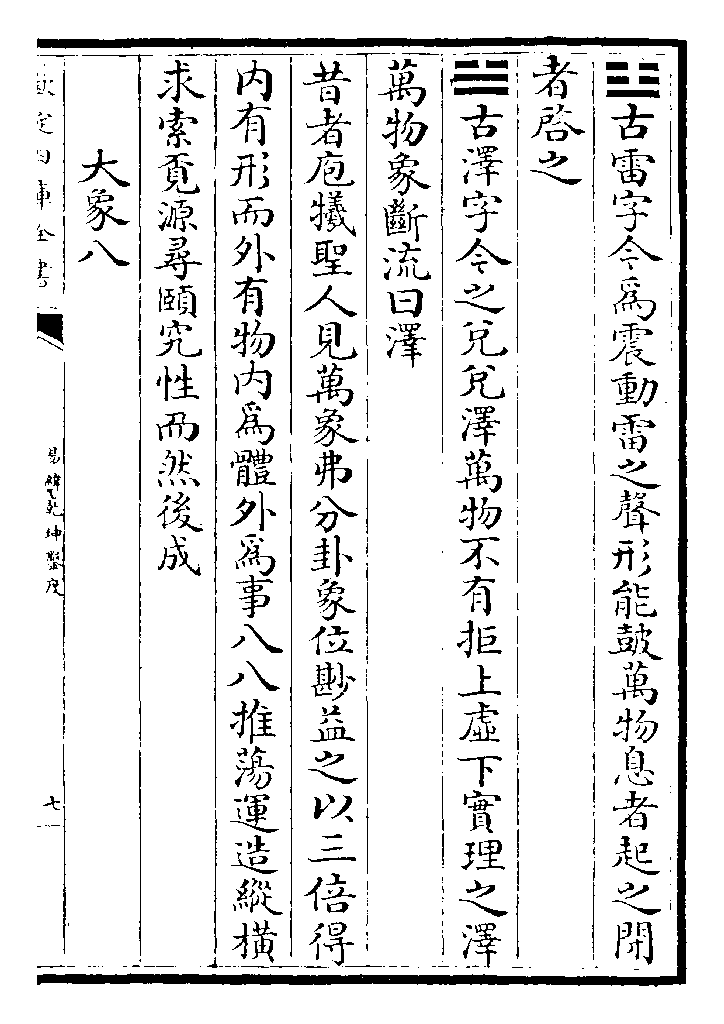 ☳古雷字今爲震動雷之聲形能皷萬物息者起之閉
者啓之
☱古澤字今之兌兌澤萬物不有拒上虛下實理之澤
萬物象斷流曰澤
昔者庖犧聖人見萬象弗分卦象位尠益之以三倍得
内有形而外有物内爲體外爲事八八推蕩運造縱橫
求索覔源尋頤究性而然後成
大象八
欽定四庫全書
易緯乾坤鑿度
七